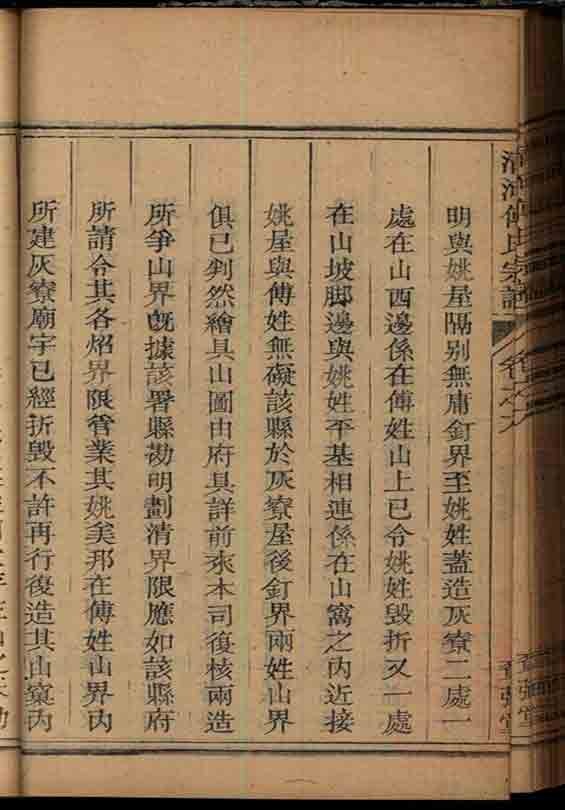 清河傅氏宗譜
卷之六
章強堂
明與姚屋隔别無庸釘界至姚姓蓋造灰寮二處一
處在山西邊係在傅姓山上已令姚姓毀折又一處
在山坡脚邊與姚姓平基相連係在山窩之内近接
姚屋與傅姓無礙該縣於灰寮屋後釘界兩姓山界
俱已判然繪具山圖由府具詳前來本司復核兩造
所爭山界旣據該署縣勘明劃清界限應如該縣府
所請令其各炤界限管業其姚矣邦在傅姓山界内
所建灰寮廟宇已經折毀不許再行復造其山窠内